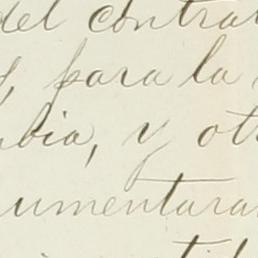 del contra
, para la
bia, y ot
umentara